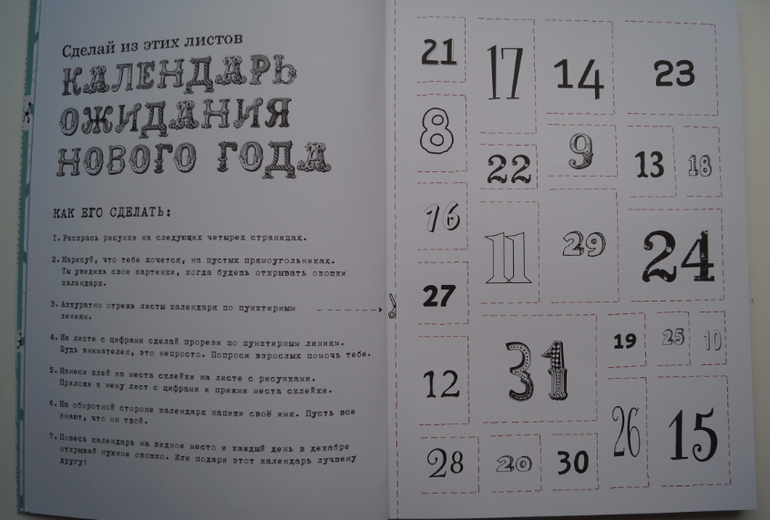 Сделай из этих листов
КАЛЕНДАРЬ
ОЖИДАНИЯ
НОВОГО ГОДА
КАК ЕГО СДЕЛАТЬ:
1. Раскрась рисунки на следующих четырех страницах.
2. Нарисуй, что тебе хочется, на пустых прямоугольниках.
Ты увидишь свои картинки, когда будешь открывать окошки
календаря.
3. Аккуратно отрежь листы календаря по пунктирным
линиям.
4. На листе с цифрами сделай прорези по пунктирным линиям.
Будь внимателен, это непросто. Попроси взрослых помочь тебе.
5. Нанеси клей на места склейки на листе с рисунками.
Приложи к нему лист с цифрами и прижми места склейки.
6. На оборотной стороне календаря напиши своё имя. Пусть все
знают, что он твой.
7. Повесь календарь на видное место и каждый день в декабре
открывай нужное окошко. Или подари этот календарь лучшему
другу!
21 17 14 23
8 22 9 13 18
16 11 29 24
27 31 19 25 10
12 26 15
28 20 30